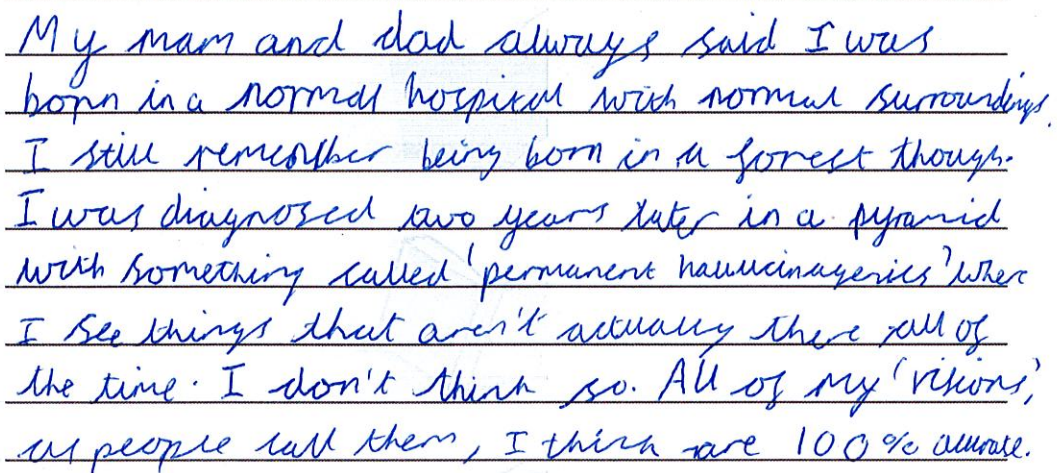 My mam and dad always said I was
born in a normal hospital with normal surroundings.
I still remember being born in a forest though.
I was diagnosed two years later in a pyramid
with something called 'permanent hallucinagenics' where
I see things that aren't actually there all of
the time. I don't think so. All of my 'visions',
as people call them, I think are 100% accurate.